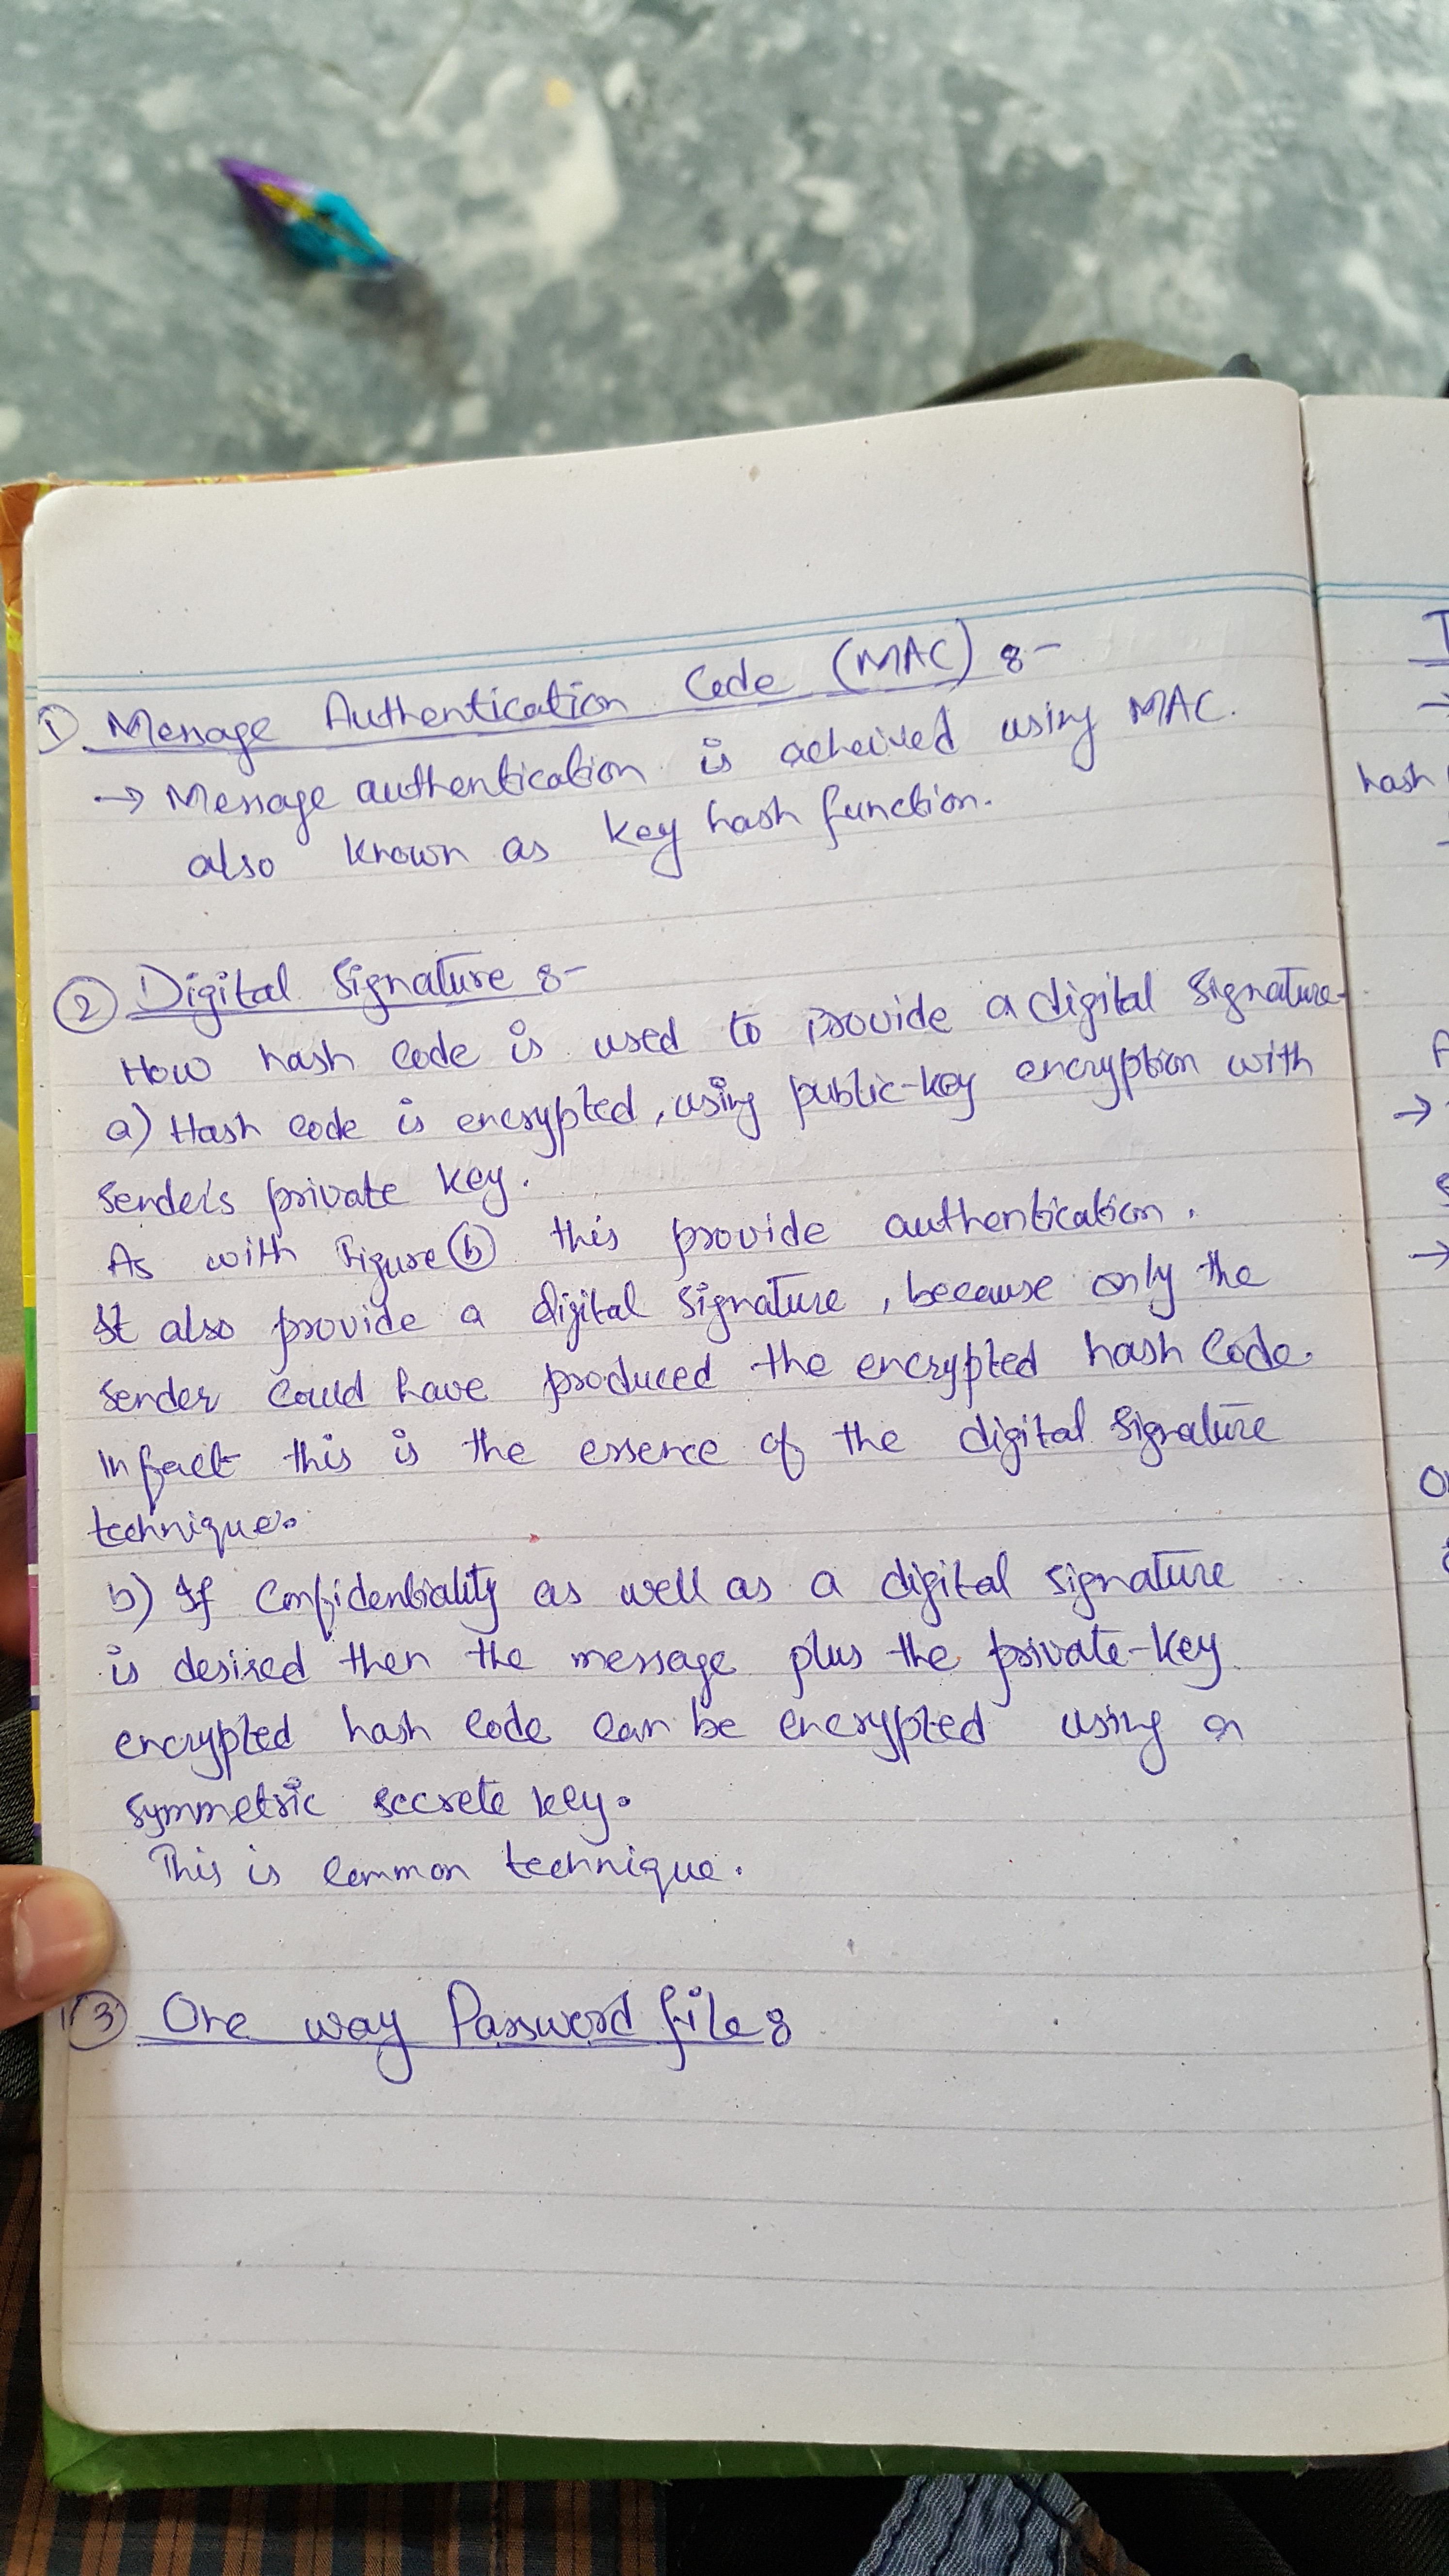 ① Message Authentication Code (MAC) :-
→ Message authentication is acheived using MAC.
also known as key hash function.
② Digital Signature :-
How hash code is used to provide a digital signature.
a) Hash code is encrypted, using public-key encryption with
sender's private key.
As with Figure ⓑ this provide authentication.
It also provide a digital signature, because only the
sender could have produced the encrypted hash code.
In fact this is the essence of the digital signature
technique.
b) If Confidentiality as well as a digital signature
is desired then the message plus the private-key
encrypted hash code can be encrypted using a
symmetric secrete key.
This is common technique.
③ One way Password file :
hash